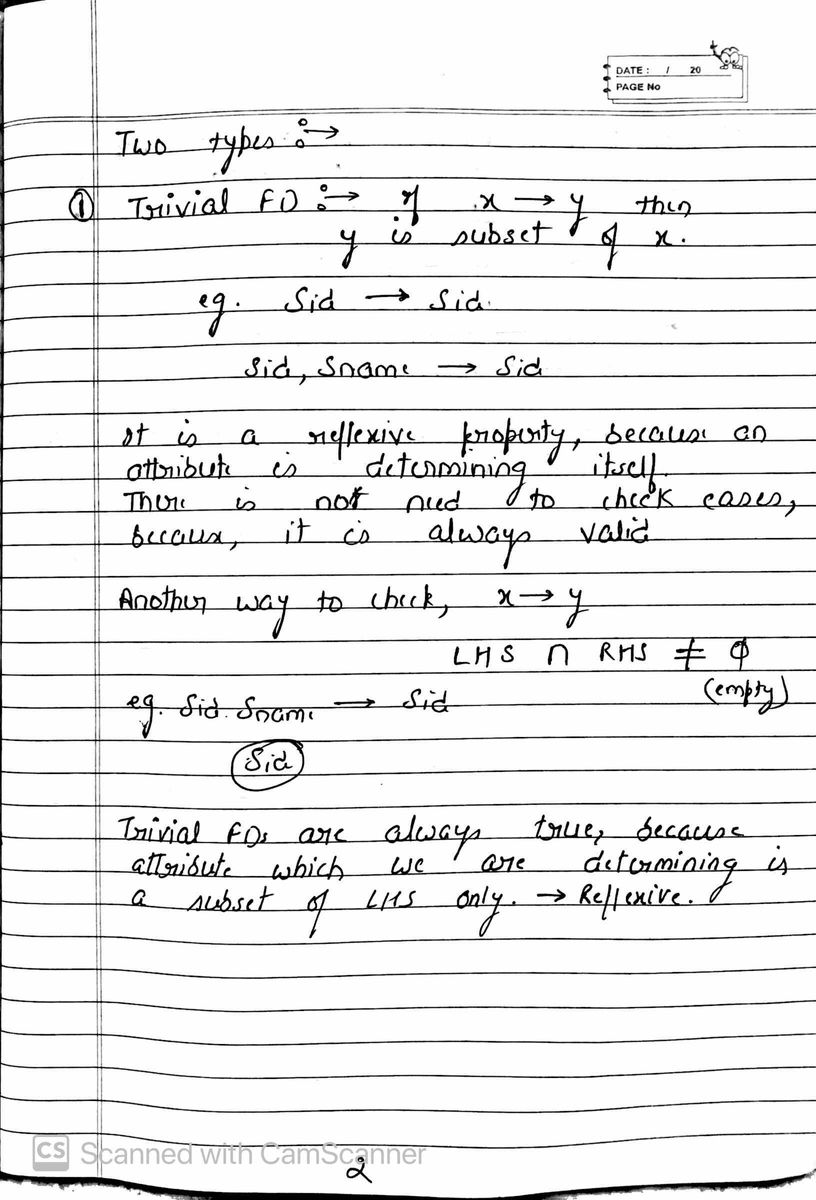 DATE : / 20
PAGE No
Two types :→
① Trivial FD :→ If x → y then
y is subset of x.
eg. Sid → Sid.
Sid, Sname → Sid
It is a reflexive property, because an
attribute is determining itself.
There is not need to check cases,
because, it is always valid
Another way to check, x → y
LHS ∩ RHS ≠ ϕ
(empty)
eg. Sid. Sname → Sid
Sid
Trivial FDs are always true, because
attribute which we are determining is
a subset of LHS only. → Reflexive.
CS Scanned with CamScanner
2